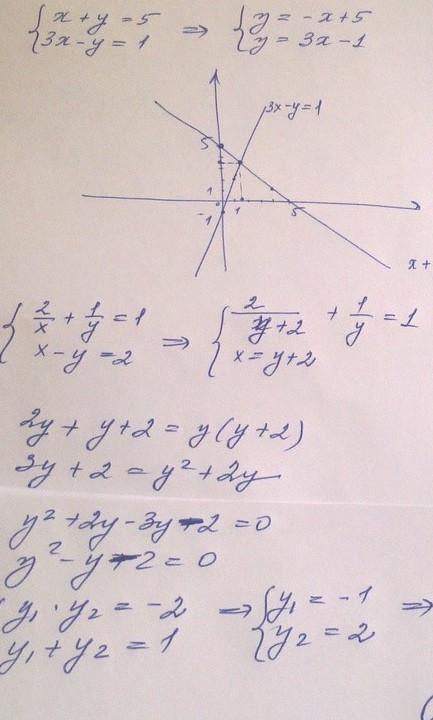 {x + y = 5 ⇒ {y = -x+5
{3x-y = 1 {y = 3x-1
3x-y=1
5
1
-1 1 5
x+
{2/x + 1/y = 1 ⇒ {2/(y+2) + 1/y = 1
{x-y = 2 {x = y+2
2y + y+2 = y(y+2)
3y + 2 = y² + 2y
y² + 2y - 3y - 2 = 0
y² - y - 2 = 0
y₁ · y₂ = -2 ⇒ {y₁ = -1 ⇒
y₁ + y₂ = 1 {y₂ = 2